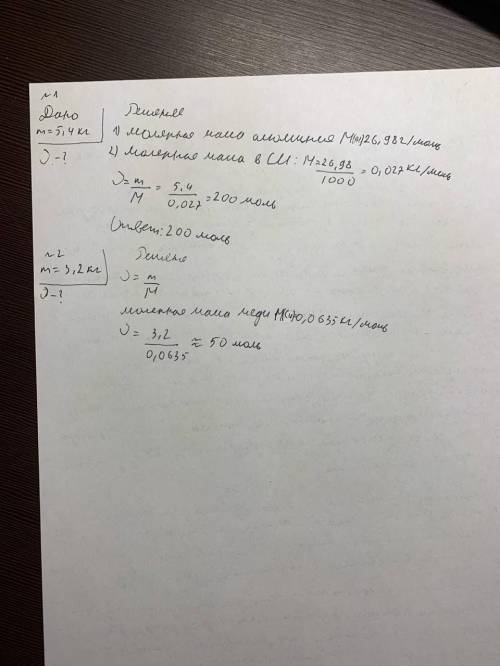 №1
Дано
m=5,4 кг
ν-?
Решение
1) молярная масса алюминия M(m)26,98 г/моль
2) молярная масса в СИ: M=26,98/1000=0,027 кг/моль
ν=m/M=5,4/0,027=200 моль
Ответ: 200 моль
№2
m=3,2 кг
ν-?
Решение
ν=m/M
молярная масса меди M(Cu)0,0635 кг/моль
ν=3,2/0,0635≈50 моль